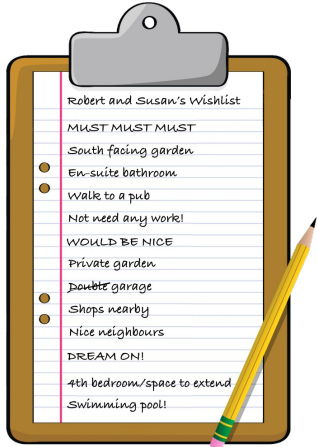 Robert and Susan's Wishlist
MUST MUST MUST
South facing garden
En-suite bathroom
Walk to a pub
Not need any work!
WOULD BE NICE
Private garden
Double garage
Shops nearby
Nice neighbours
DREAM ON!
4th bedroom/space to extend
Swimming pool!